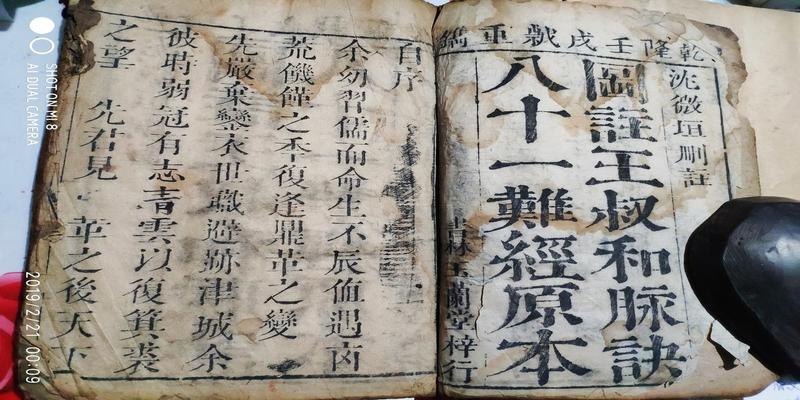 乾隆壬戌歲重鐫
沈微垣刪註
圖註王叔和脉訣
八十一難經原本
書林玉蘭堂梓行
自序
余幼習儒而命生不辰值遇凶
荒饑饉之秊復逢鼎革之變
先嚴棄蠻衣世職避跡津城余
彼時弱冠有志青雲以復箕裘
之望 先君見 革之後天下
SHOT ON MI 8
AI DUAL CAMERA
2019/2/21 00:09